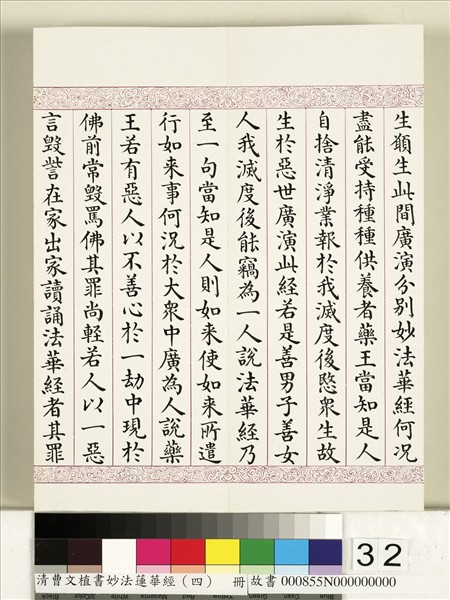 生願生此間廣演分別妙法華經何况
盡能受持種種供養者藥王當知是人
自捨清淨業報於我滅度後愍衆生故
生於惡世廣演此經若是善男子善女
人我滅度後能竊為一人說法華經乃
至一句當知是人則如来使如来所遣
行如来事何況於大衆中廣為人說藥
王若有惡人以不善心於一劫中現於
佛前常毀罵佛其罪尚輕若人以一惡
言毀訾在家出家讀誦法華經者其罪
32
清曹文植書妙法蓮華經（四） 冊 故書 000855N000000000